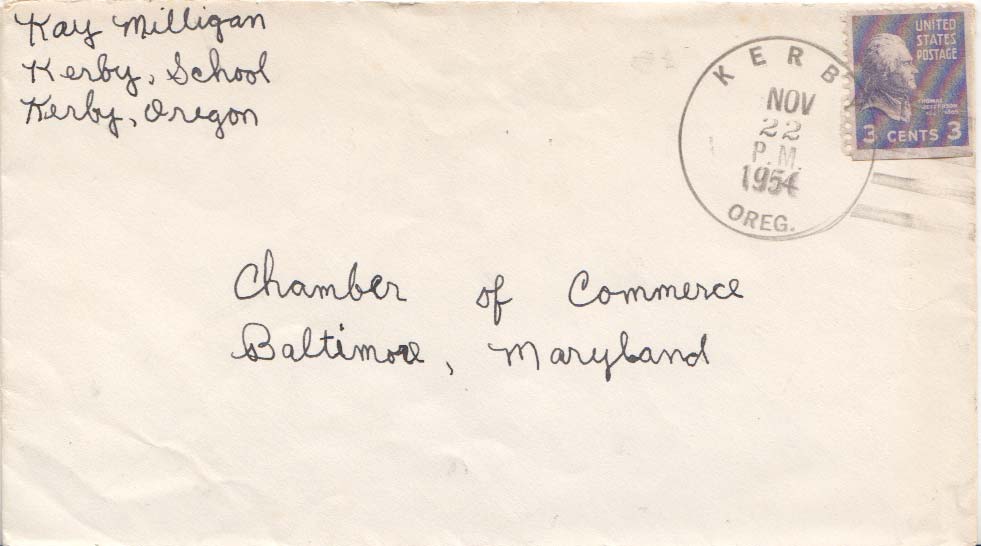 Kay Milligan
Kerby, School
Kerby, Oregon
KERB
NOV
22
P.M.
1954
OREG.
UNITED
STATES
POSTAGE
THOMAS
JEFFERSON
3 CENTS 3
Chamber of Commerce
Baltimore, Maryland